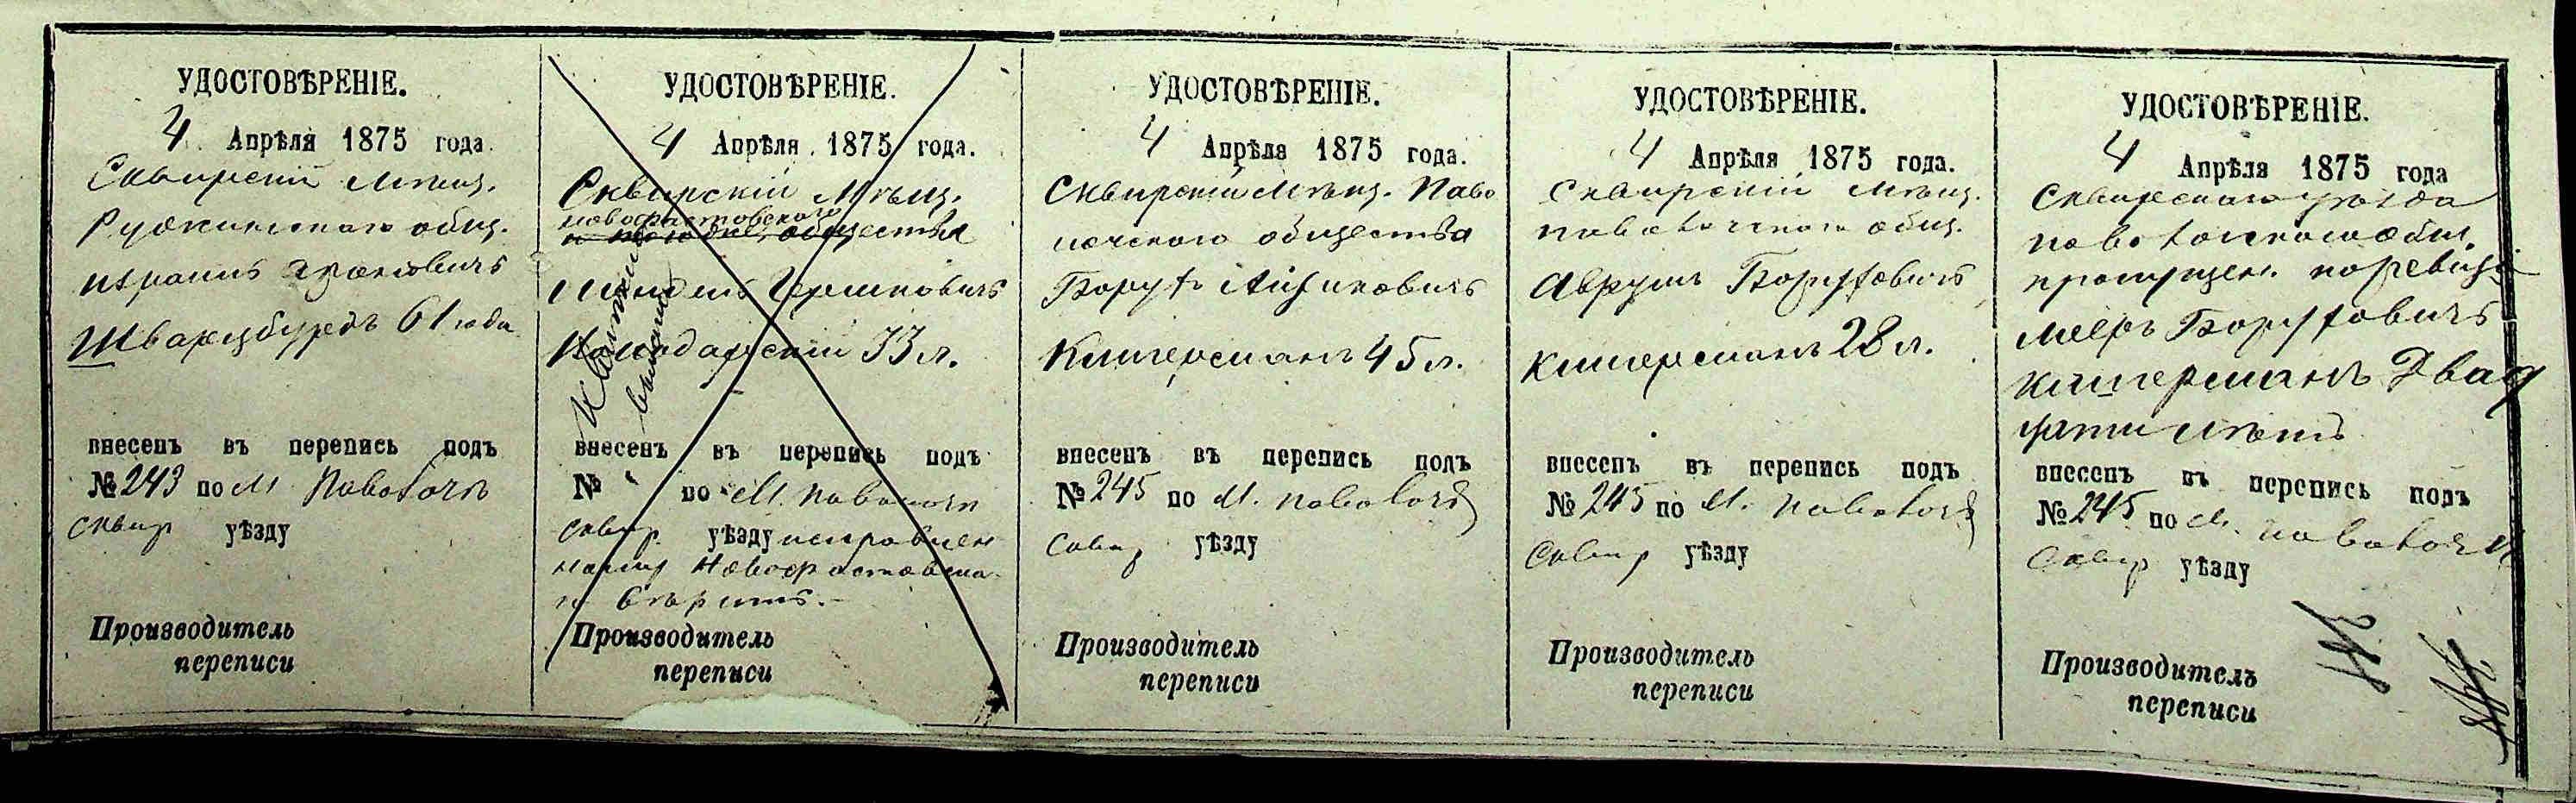 УДОСТОВѢРЕНІЕ.
4 Апрѣля 1875 года.
Сквирскій мѣщ.
Ружинскаго общ.
Шварцбурдъ 61 года
внесенъ въ перепись подъ
№ 243 по м. Паволочи
Сквир уѣзду
Производитель
переписи
УДОСТОВѢРЕНІЕ.
4 Апрѣля 1875 года.
Сквирскій Мѣщ.
новофастовскаго
общества
Гершковичъ
33 л.
внесенъ въ перепись подъ
№ по М. Паволочи
Сквир. уѣзду
вѣрить.
Производитель
переписи
УДОСТОВѢРЕНІЕ.
4 Апрѣля 1875 года.
Сквирскій Мѣщ. Паво
лочского общества
Борухъ Айзиковичъ
Кишерманъ 45 л.
внесенъ въ перепись подъ
№ 245 по М. Паволочѣ
Сквир уѣзду
Производитель
переписи
УДОСТОВѢРЕНІЕ.
4 Апрѣля 1875 года.
Сквирскій мѣщ.
паволочского общ.
Аврумъ Боруховичъ
Кишерманъ 28 л.
внесенъ въ перепись подъ
№ 245 по М. Паволочѣ
Сквир уѣзду
Производитель
переписи
УДОСТОВѢРЕНІЕ.
4 Апрѣля 1875 года
Сквирскаго уѣзда
паволочского общ.
пропущен. по ревизіи
Мееръ Боруховичъ
Кишерманъ Двад
цати лѣтъ
внесенъ въ перепись подъ
№ 245 по М. Паволочи
Сквир уѣзду
Производитель
переписи